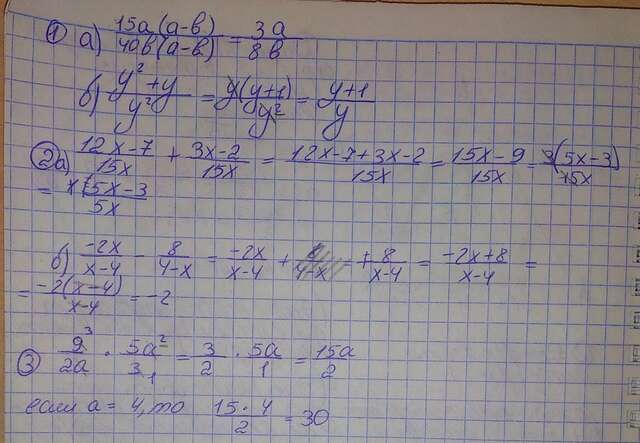 ① а) 15a(a-b)/4ab(a-b) = 3a/8b
б) y²+y/y² = y(y+1)/y² = y+1/y
② а) 12x-7/15x + 3x-2/15x = 12x-7+3x-2/15x = 15x-9/15x = 3(5x-3)/15x
= 5x-3/5x
б) -2x/x-4 - 8/4-x = -2x/x-4 + 8/x-4 = -2x+8/x-4 =
= -2(x-4)/x-4 = -2
③ 9³/2a · 5a²/3₁ = 3/2 · 5a/1 = 15a/2
если a = 4, то 15·4/2 = 30